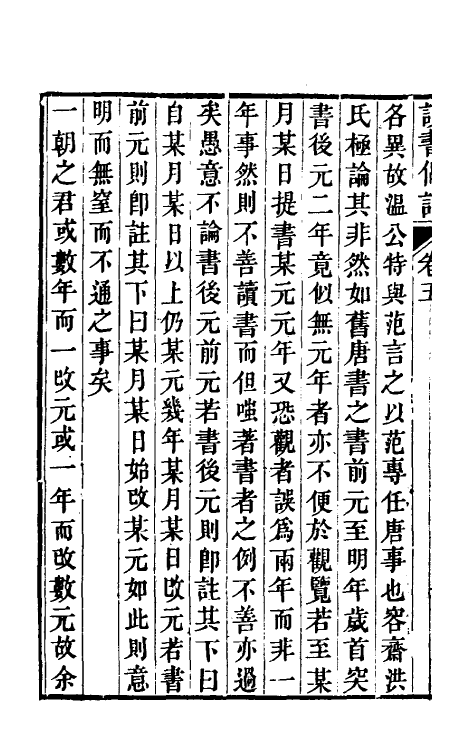 讀書偶記 卷五
各異故溫公特與范言之以范專任唐事也容齋洪
氏極論其非然如舊唐書之書前元至明年歲首突
書後元二年竟似無元年者亦不便於觀覽若至某
月某日提書某元元年又恐觀者誤爲兩年而非一
年事然則不善讀書而但嗤著書者之例不善亦過
矣愚意不論書後元前元若書後元則卽註其下曰
自某月某日以上仍某元幾年某月某日改元若書
前元則卽註其下曰某月某日始改某元如此則意
明而無窒而不通之事矣
一朝之君或數年而一改元或一年而改數元故余